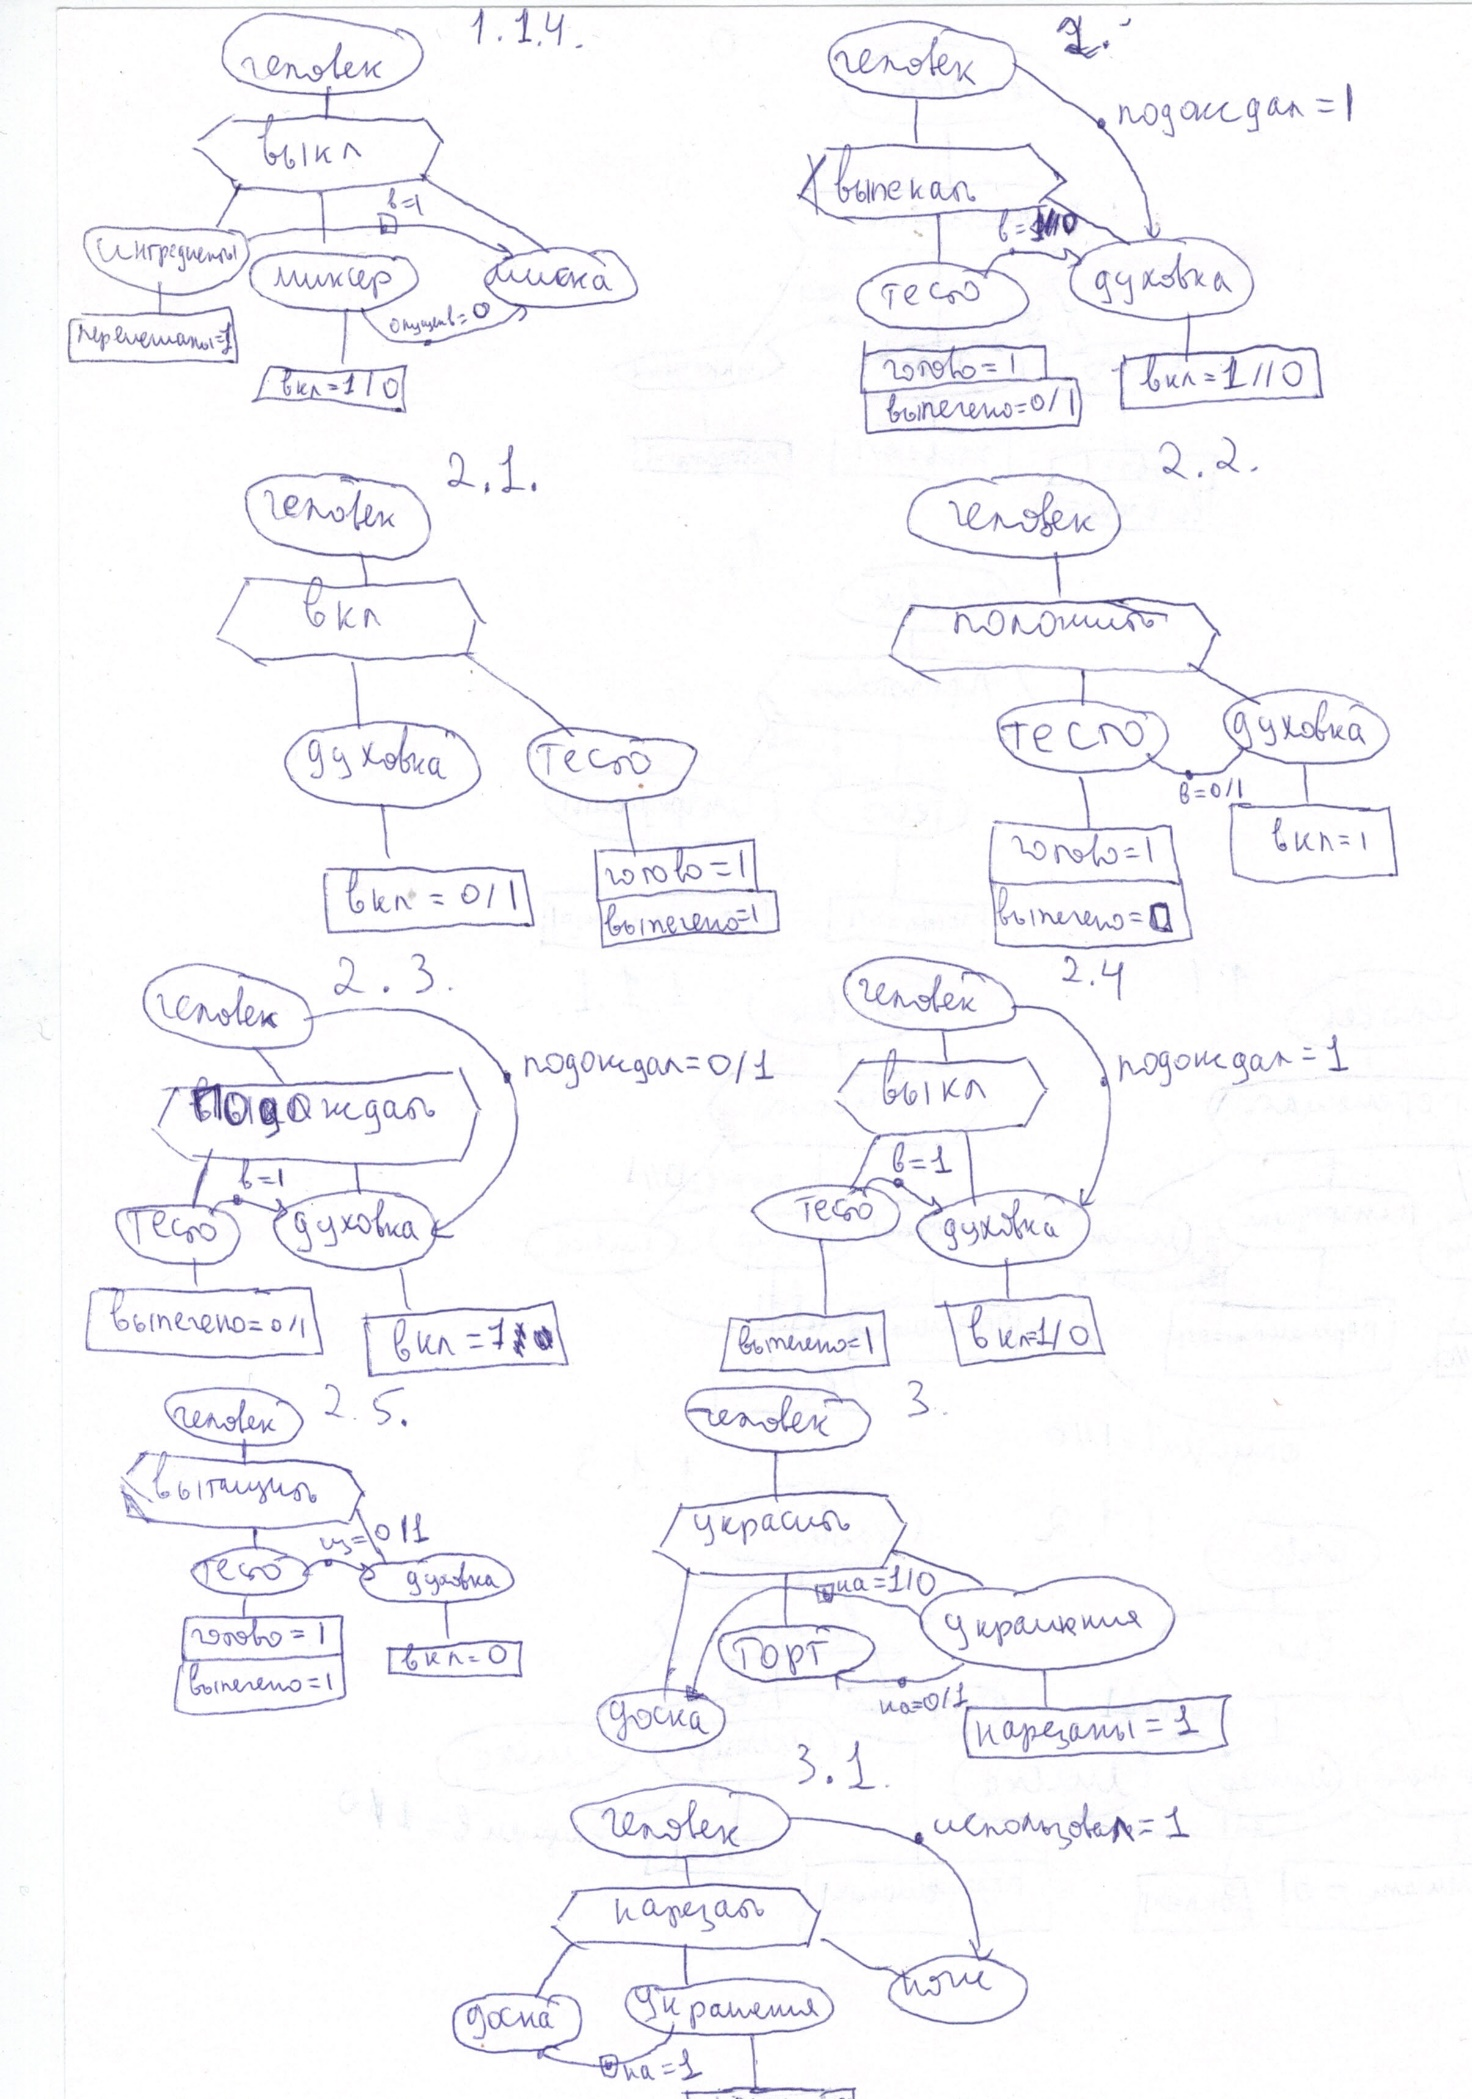 1.1.4.
человек
выкл
в=1
ингредиенты
миксер
миска
опущен в=0
перемешаны=1
вкл=1/0
2.
человек
подождал=1
выпекать
тесто
духовка
готово=1
выпечено=0/1
вкл=1//0
2.1.
человек
вкл
духовка
тесто
вкл=0/1
готово=1
выпечено=1
2.2.
человек
положить
тесто
духовка
в=0/1
готово=1
выпечено=0
вкл=1
2.3.
человек
подождал=0/1
подождать
в=1
тесто
духовка
выпечено=0/1
вкл=1
2.4
человек
подождал=1
выкл
в=1
тесто
духовка
выпечено=1
вкл=1/0
2.5.
человек
вытащить
из=0/1
тесто
духовка
готово=1
выпечено=1
вкл=0
3.
человек
украсить
на=1/0
украшения
торт
доска
на=0/1
нарезаны=1
3.1.
человек
использовал=1
нарезать
нож
доска
украшения
на=1